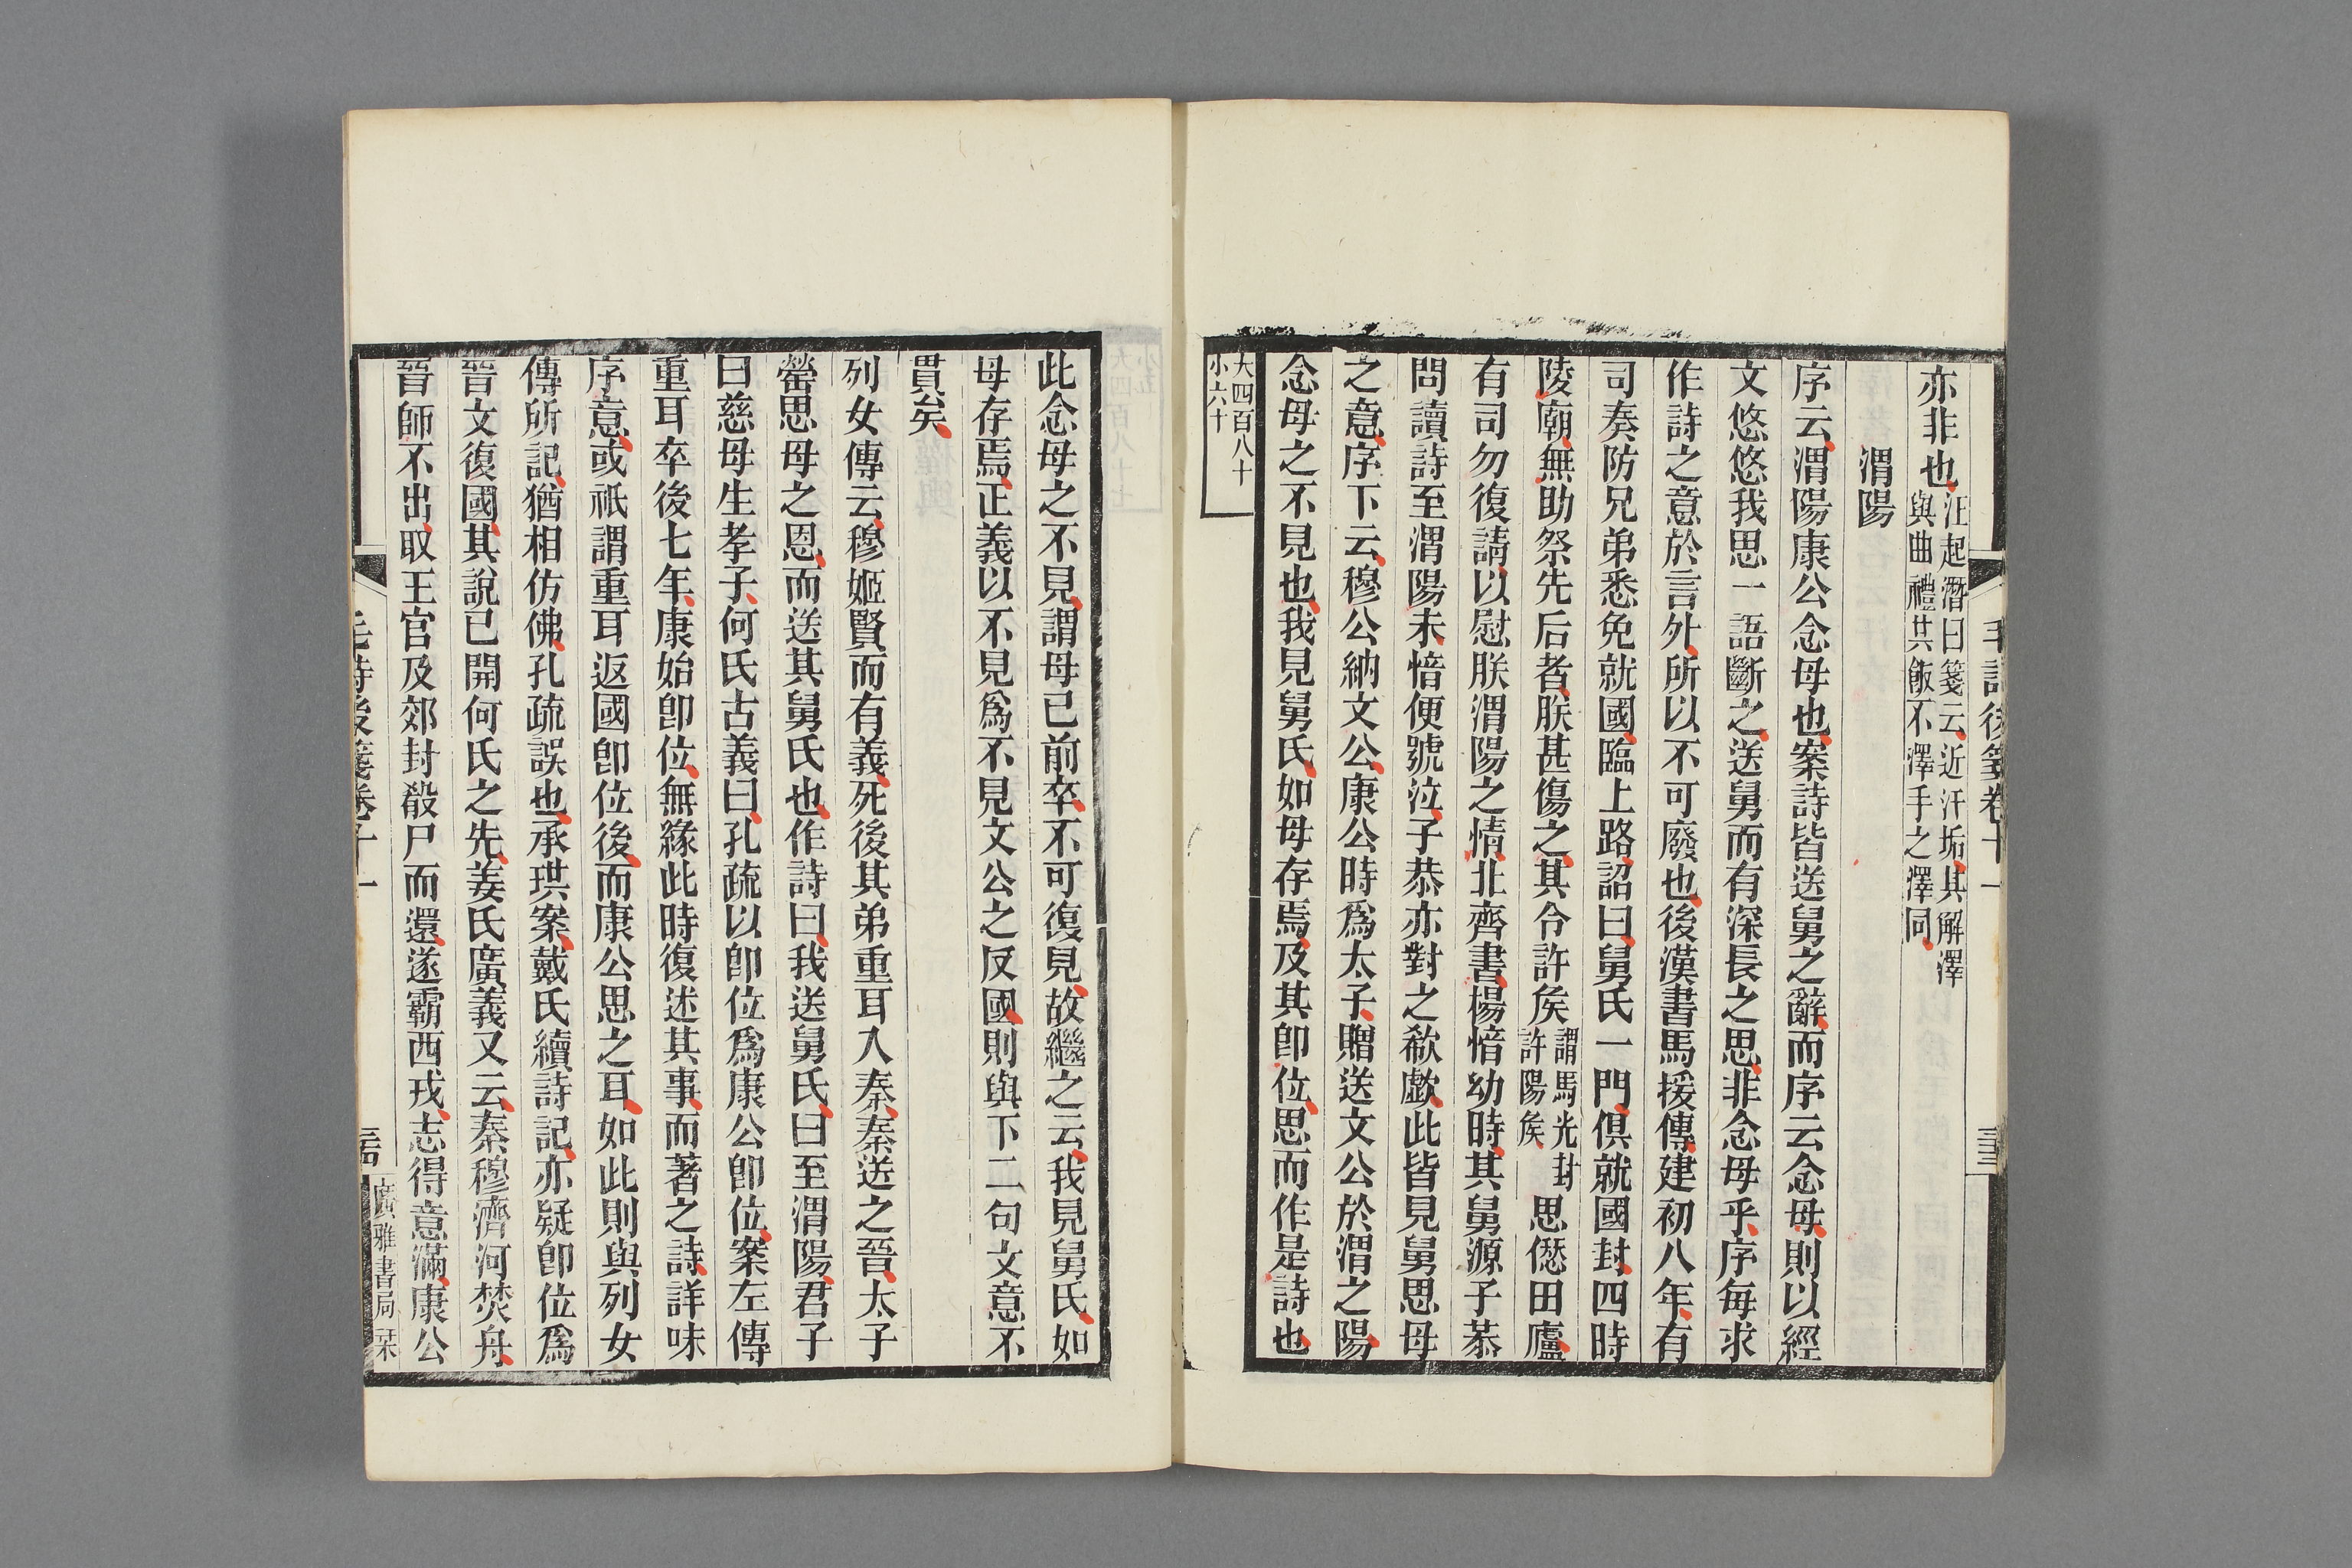 毛詩後箋卷十一
亦非也
汪起潛曰箋云近汗垢其解澤
與曲禮共飯不澤手之澤同
渭陽
序云渭陽康公念母也案詩皆送舅之辭而序云念母則以經
文悠悠我思一語斷之送舅而有深長之思非念母乎序每求
作詩之意於言外所以不可廢也後漢書馬援傳建初八年有
司奏防兄弟悉免就國臨上路詔曰舅氏一門俱就國封四時
陵廟無助祭先后者朕甚傷之其令許矦
謂馬光封
許陽矦
思愆田廬
有司勿復請以慰朕渭陽之情北齊書楊愔幼時其舅源子恭
問讀詩至渭陽未愔便號泣子恭亦對之欷歔此皆見舅思母
之意序下云穆公納文公康公時爲太子贈送文公於渭之陽
念母之不見也我見舅氏如母存焉及其卽位思而作是詩也
大四百八十
小六十
此念母之不見謂母已前卒不可復見故繼之云我見舅氏如
母存焉正義以不見爲不見文公之反國則與下二句文意不
貫矣
列女傳云穆姬賢而有義死後其弟重耳入秦秦送之晉太子
罃思母之恩而送其舅氏也作詩曰我送舅氏曰至渭陽君子
曰慈母生孝子何氏古義曰孔疏以卽位爲康公卽位案左傳
重耳卒後七年康始卽位無緣此時復述其事而著之詩詳味
序意或祇謂重耳返國卽位後而康公思之耳如此則與列女
傳所記猶相仿佛孔疏誤也承珙案戴氏續詩記亦疑卽位爲
晉文復國其說已開何氏之先姜氏廣義又云秦穆濟河焚舟
晉師不出取王官及郊封殽尸而還遂霸西戎志得意滿康公
毛詩後箋卷十一
廣雅書局栞